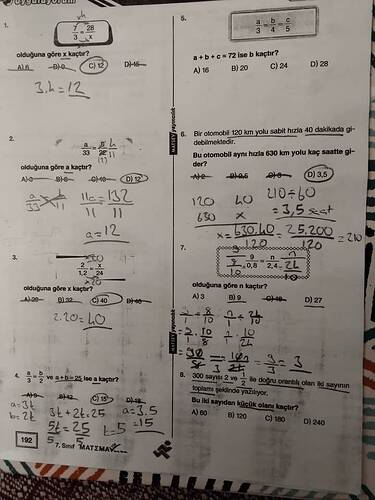 Uyguluyorum
1.
7/3 = 28/x
olduğuna göre x kaçtır?
A) 6 B) 9 C) 12 D) 15
3.4=12
2.
a/33 = 4/11
olduğuna göre a kaçtır?
D) 12
a/33 4/11 11a/11 = 132/11
a=12
3.
2/1,2 = x/24
x20
olduğuna göre x kaçtır?
A) 20 B) 32 C) 40 D) 45
2.20=40
4.
a/3 = b/2 ve a+b=25 ise a kaçtır?
A) 9 B) 12 C) 15 D) 18
a=3t
b=2t
3t+2t=25
5t/5 = 25/5
t=5
a=3.5
=15
192
7. Sınıf MATEMATİK
5.
a/3 = b/4 = c/5
a + b + c = 72 ise b kaçtır?
A) 16 B) 20 C) 24 D) 28
6. Bir otomobil 120 km yolu sabit hızla 40 dakikada gi-
debilmektedir.
Bu otomobil aynı hızla 630 km yolu kaç saatte gi-
der?
A) 2 B) 2,5 C) 3 D) 3,5
120 40 210÷60
630 x =3,5 saat
x = 630.40/120 = 25.200/120 = 210
7.
9/0,8 = n/2,4
olduğuna göre n kaçtır?
A) 3 B) 9 C) 18 D) 27
= 3
8. 300 sayısı 2 ve 1/2 ile doğru orantılı olan iki sayının
toplamı şeklinde yazılıyor.
Bu iki sayıdan küçük olanı kaçtır?
A) 60 B) 120 C) 180 D) 240